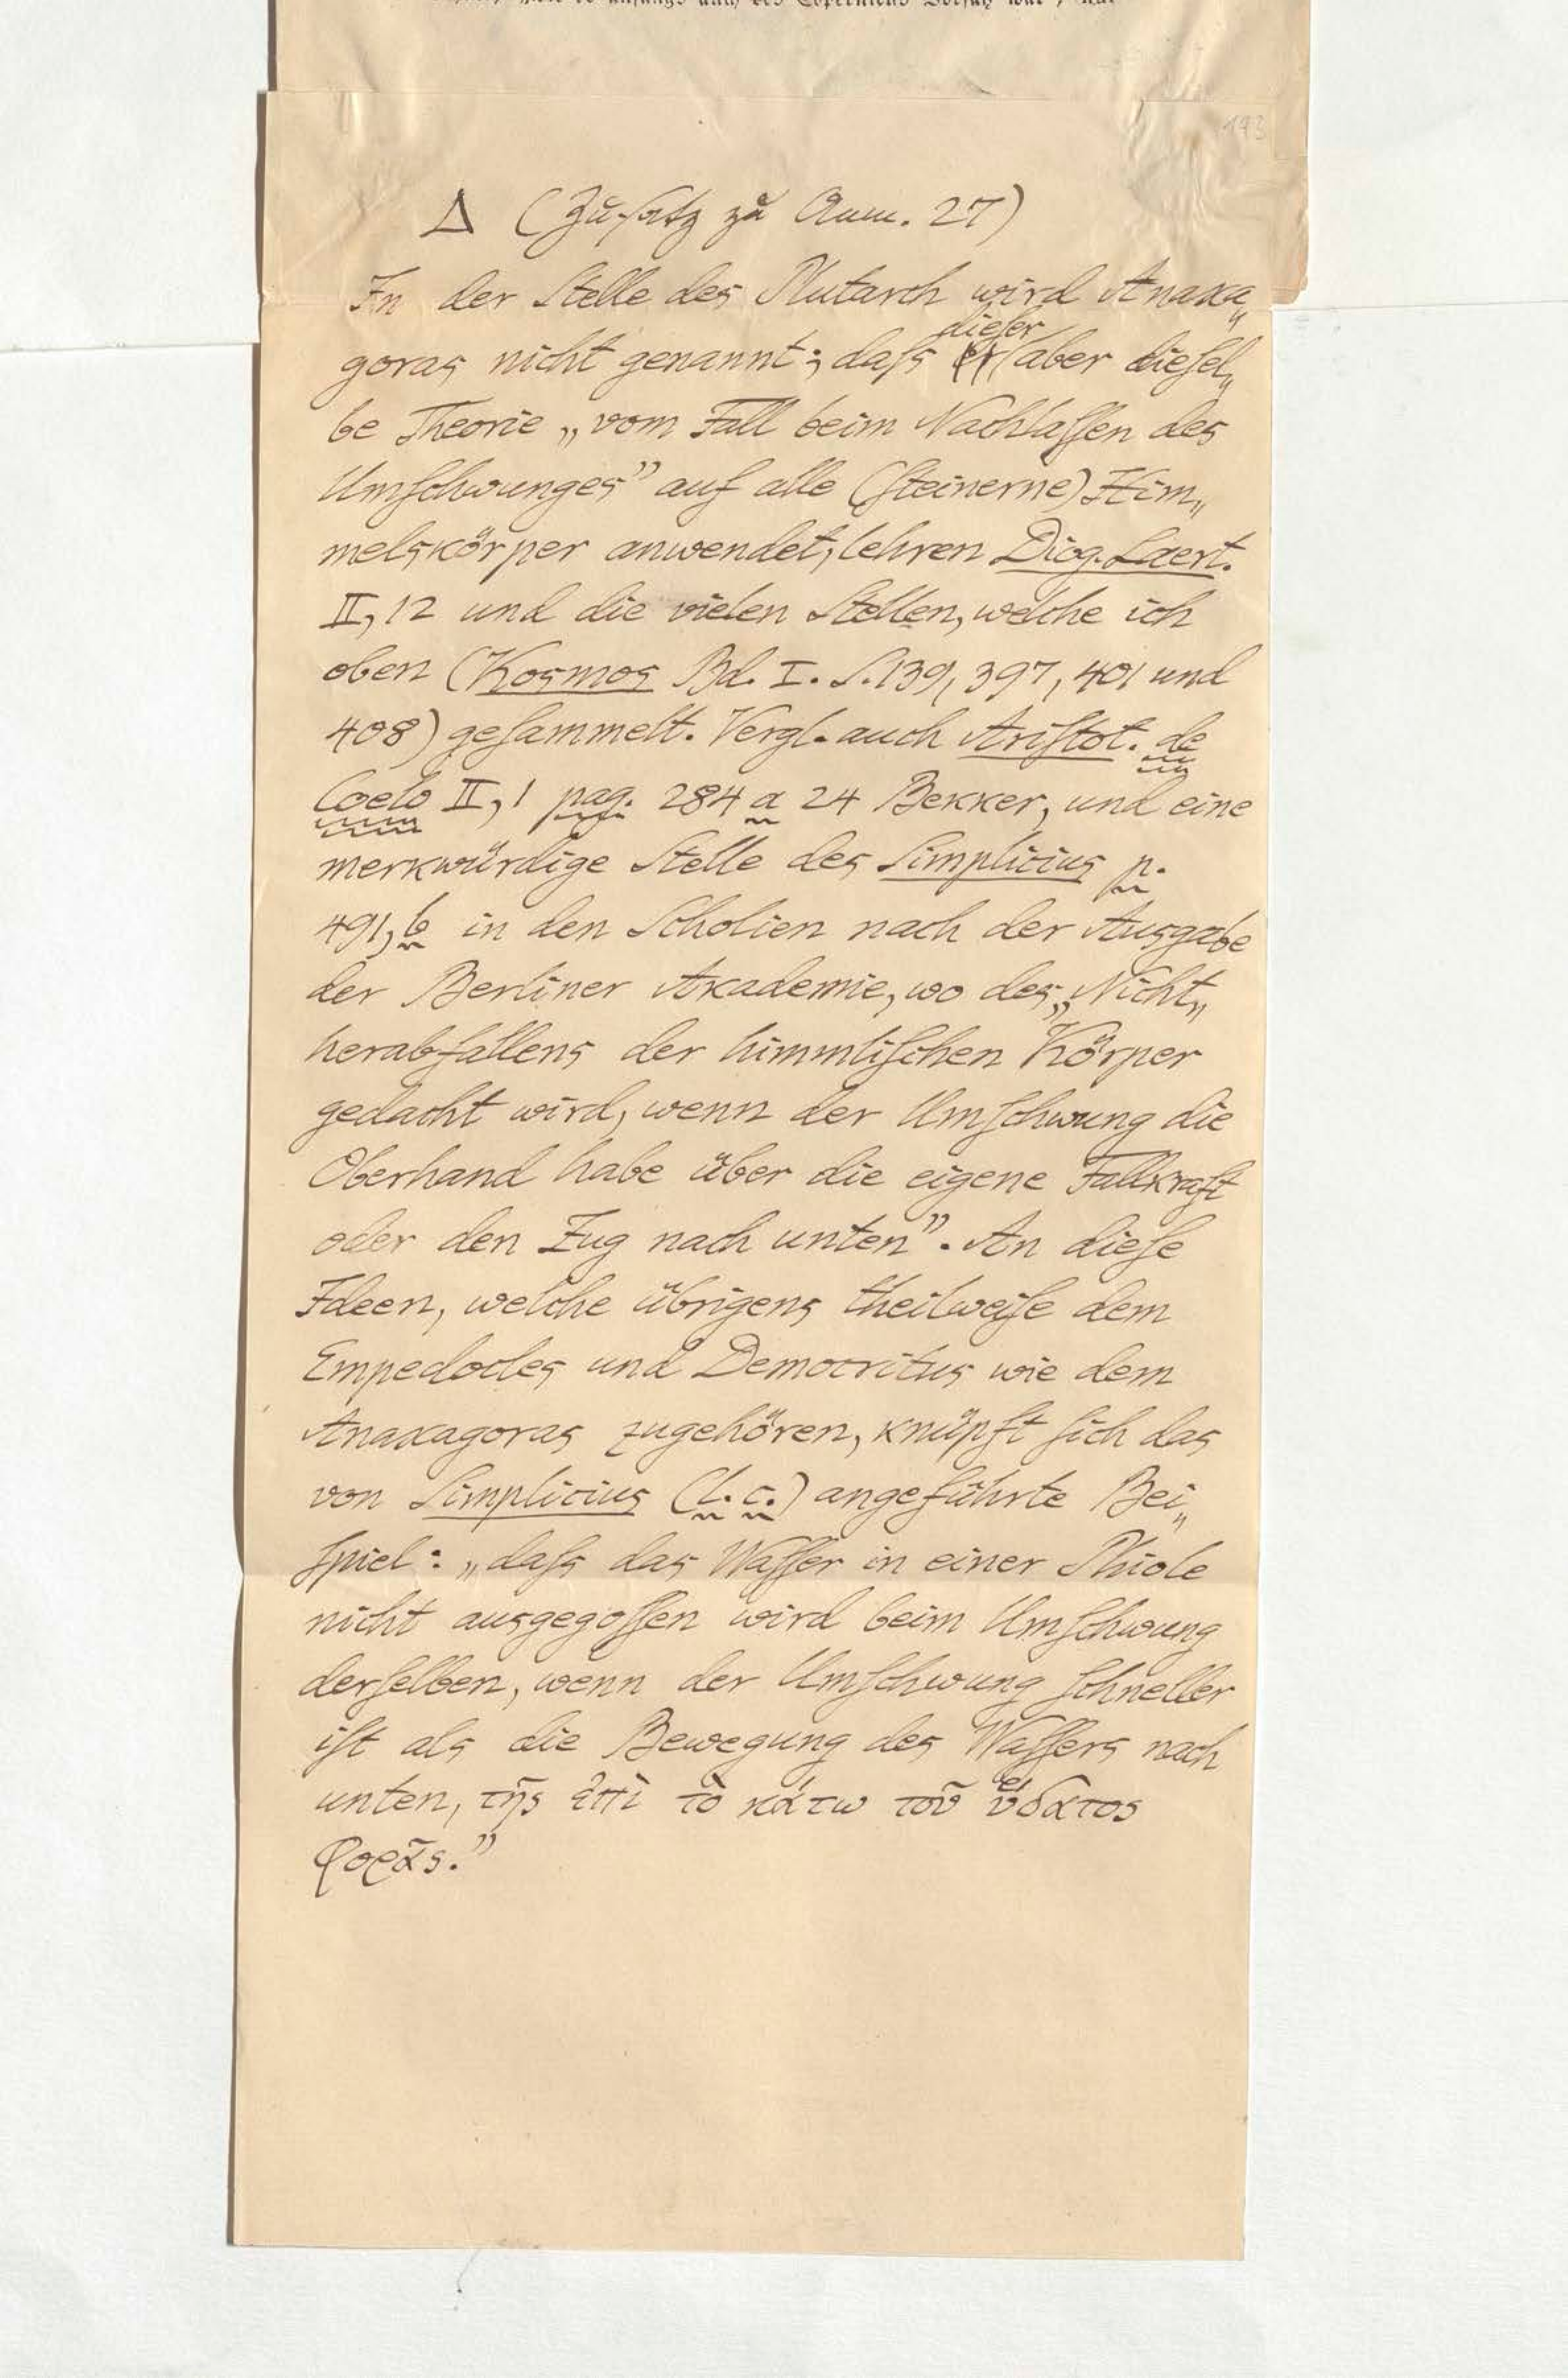 193
Δ (Zusatz zu Anm. 27)
In der Stelle des Plutarch wird Anaxa„
dieser
goras nicht genannt; daſs er aber dieſel„
be Theorie „vom Fall beim Nachlaſſen des
Umſchwunges” auf alle (ſteinerne) Him„
melskörper anwendet, lehren Diog. Laert.
II, 12 und die vielen Stellen, welche ich
oben (Kosmos Bd. I. S. 139, 397, 401 und
408) geſammelt. Vergl. auch Ariſtot. de
Coelo II, 1 pag. 284 a 24 Bekker, und eine
merkwürdige Stelle des Simplicius p.
491, b in den Scholien nach der Ausgabe
der Berliner Akademie, wo des „Nicht„
herabfallens der himmliſchen Körper
gedacht wird, wenn der Umſchwung die
Oberhand habe über die eigene Fallkraft
oder den Zug nach unten”. An dieſe
Ideen, welche übrigens theilweiſe dem
Empedocles und Democritus wie dem
Anaxagoras zugehören, knüpft ſich das
von Simplicius (l. c.) angeführte Bei„
ſpiel: „daſs das Waſſer in einer Phiole
nicht ausgegoſſen wird beim Umſchwung
derſelben, wenn der Umſchwung ſchneller
iſt als die Bewegung des Waſſers nach
unten, τῆς ἐπὶ τὸ κάτω τοῦ ὕδατος
φορᾶς.”